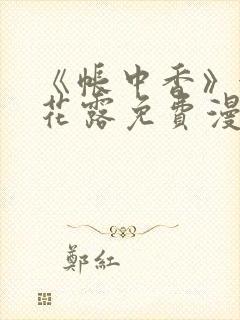 《帳中香》
花露免費漫
鄭紅